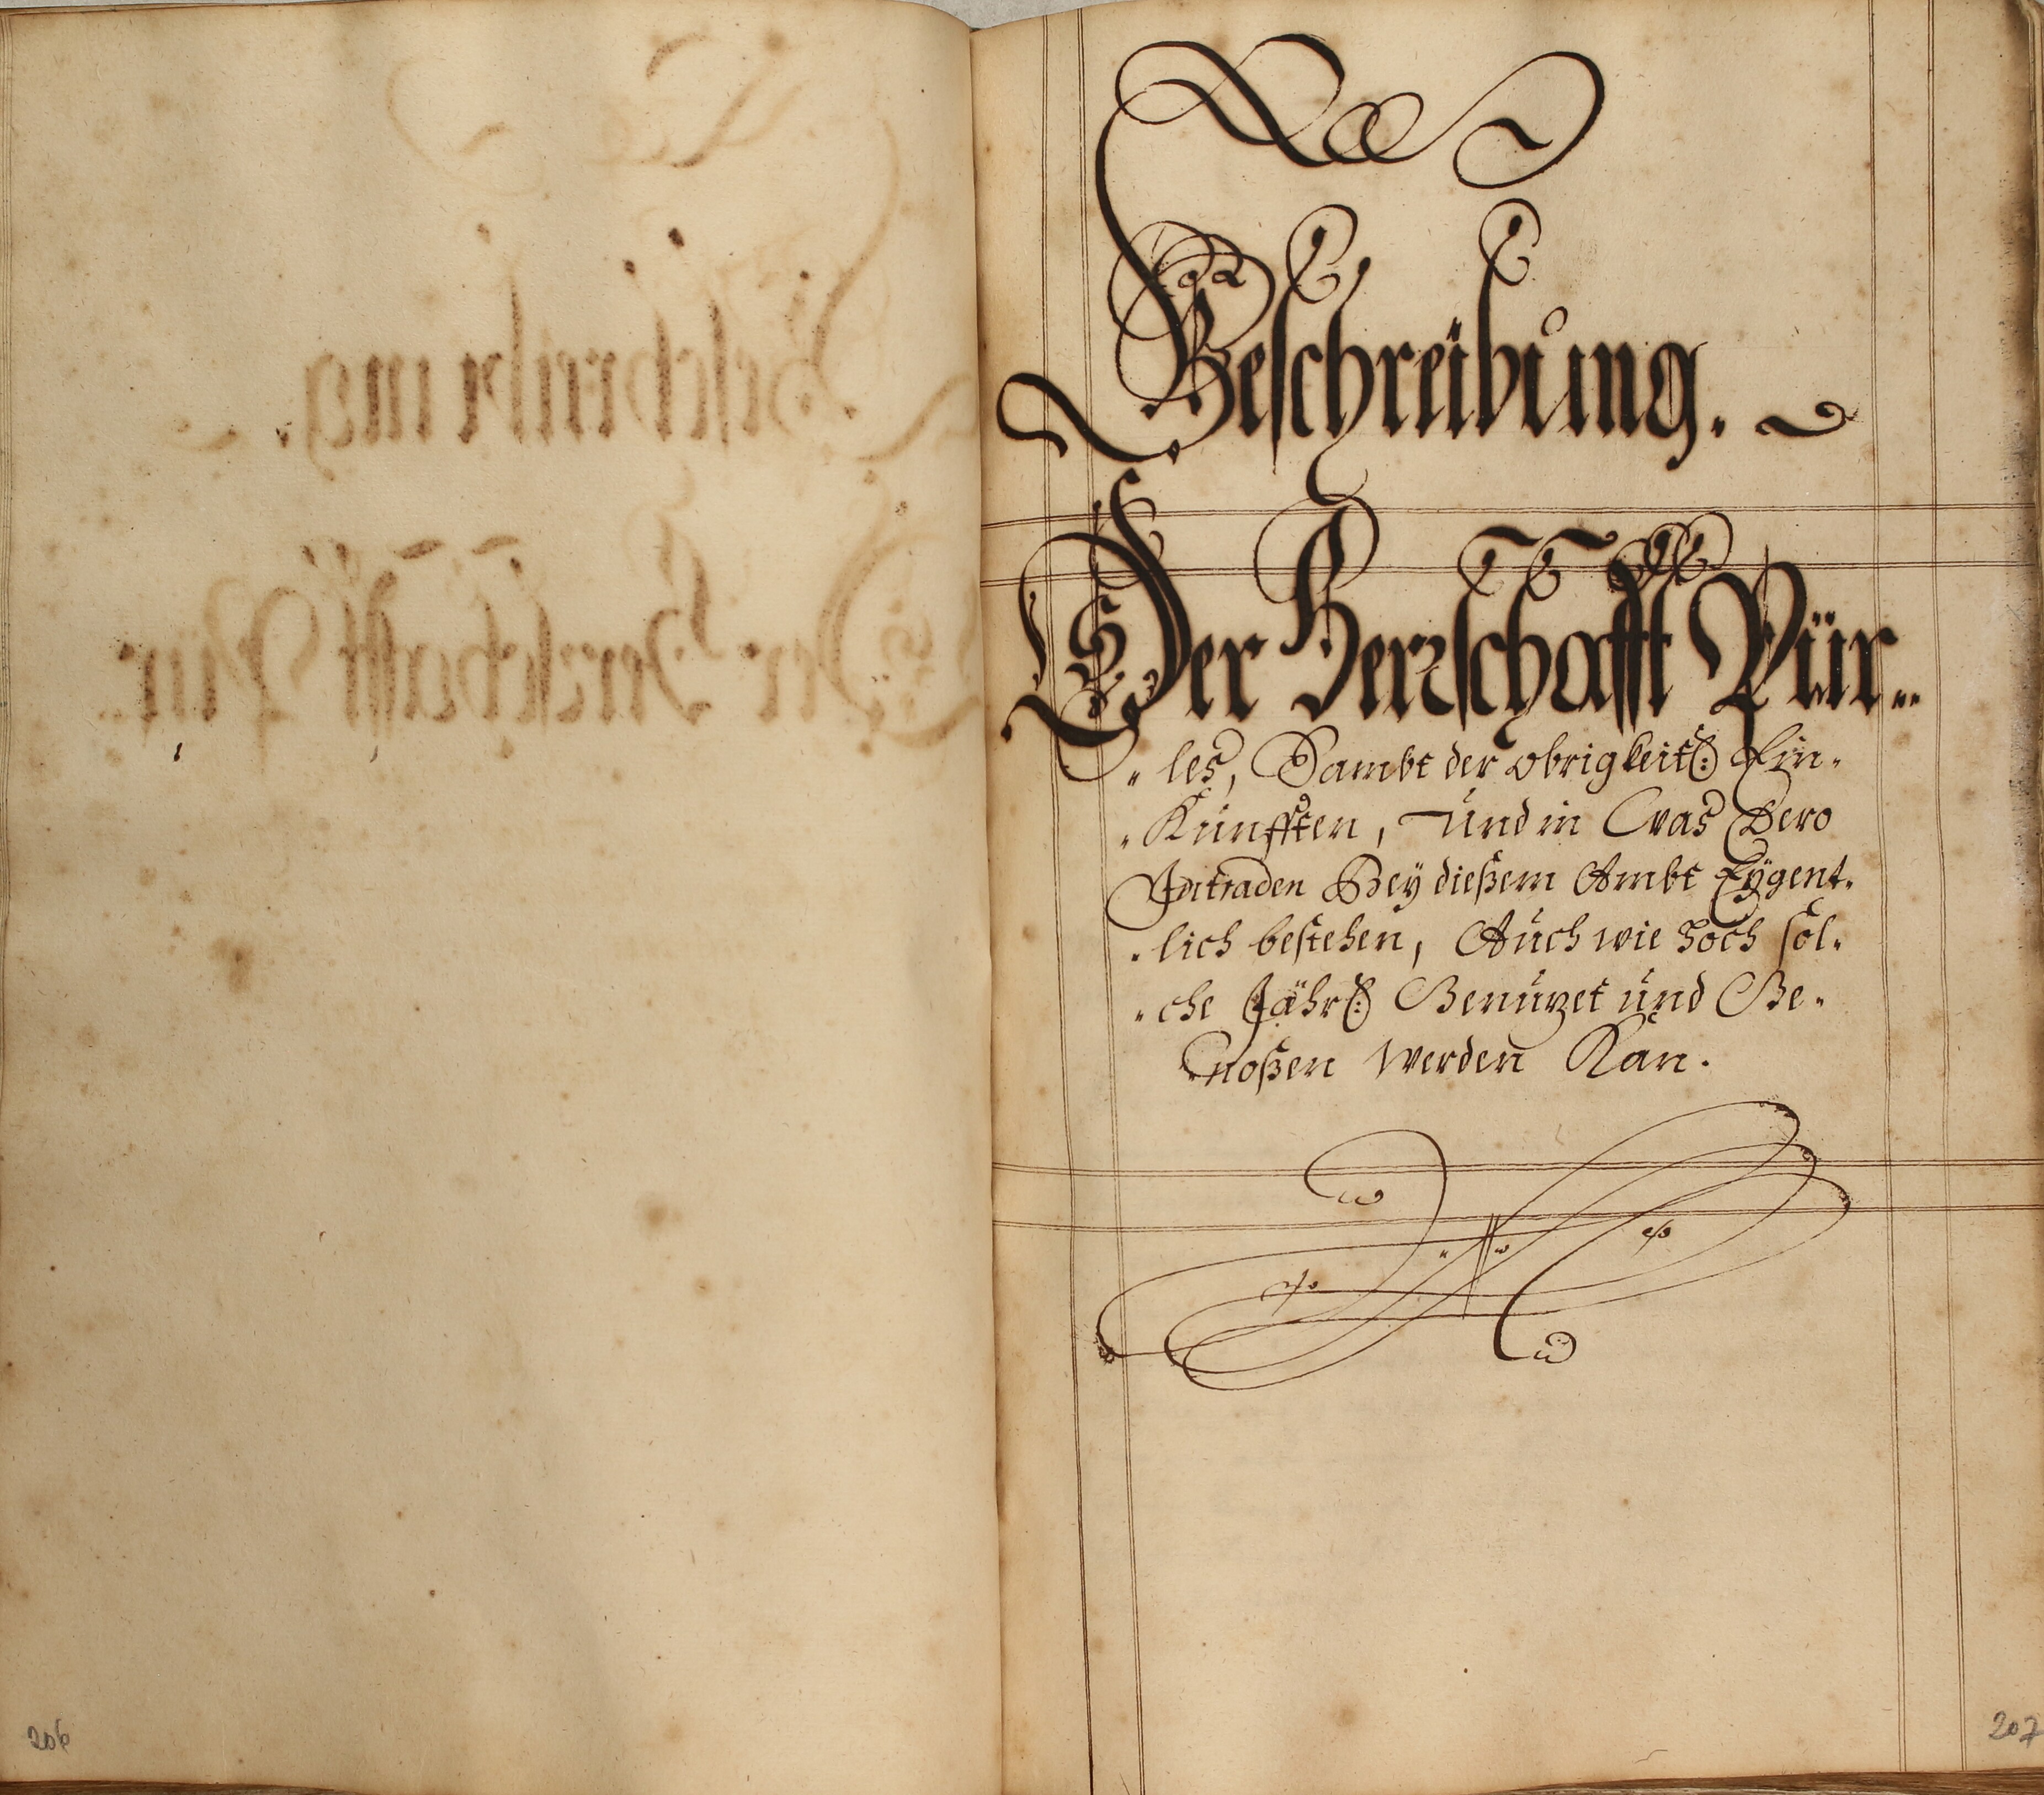 Beschreibung.
Der Herrschafft Pür„
„les, Sambt der obrigkeitl: Ein„
„Künfften, und in Was Dero
Intraden Bey dießem Ambt Eÿgent„
„lich bestehen, Auch wie Hoch sol„
„che Jährl: Benuzet und Ge„
noßen werden Kan.
206
207